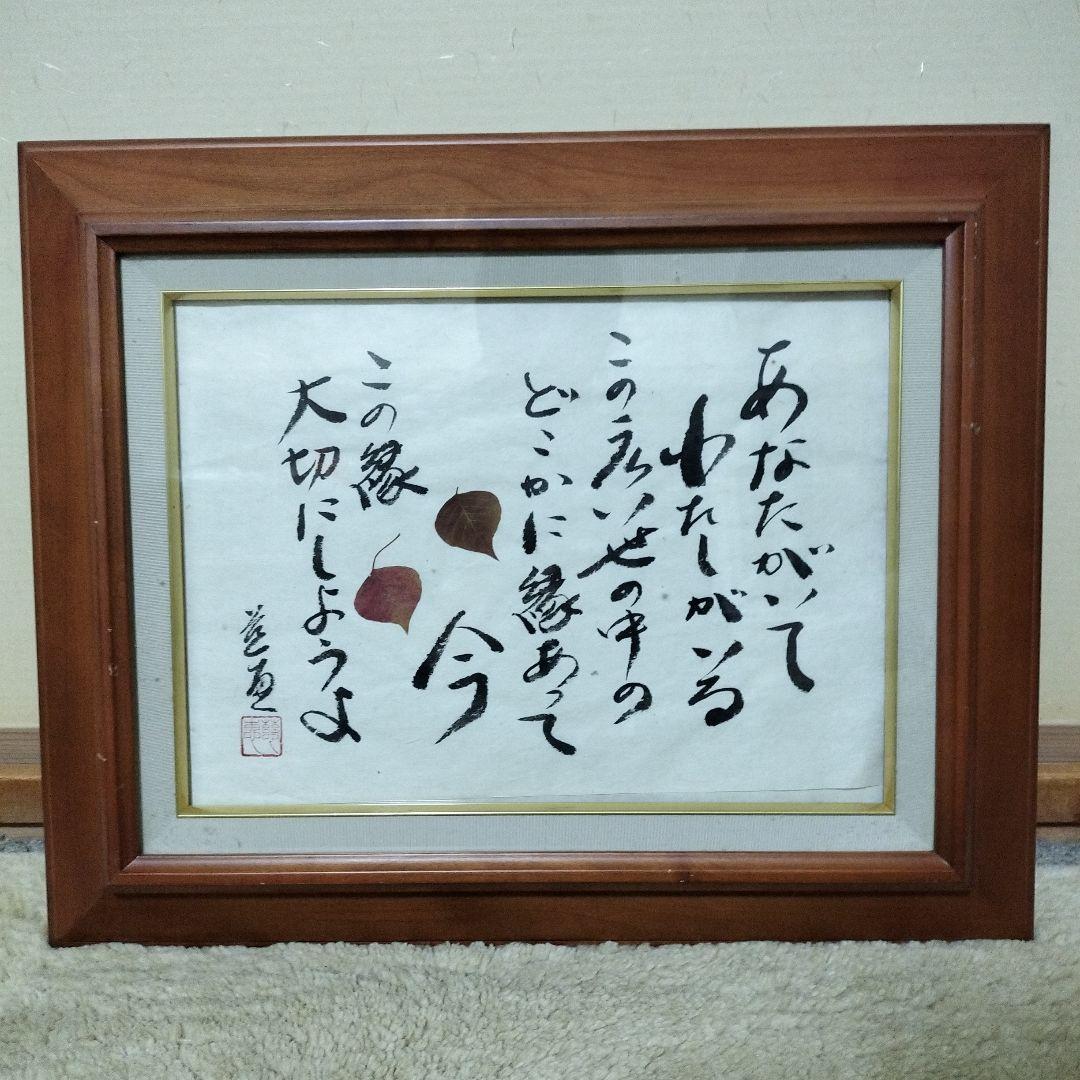 あなたがいて
わたしがいる
この広い世の中の
どこかに縁あって
今
この縁
大切にしようよ